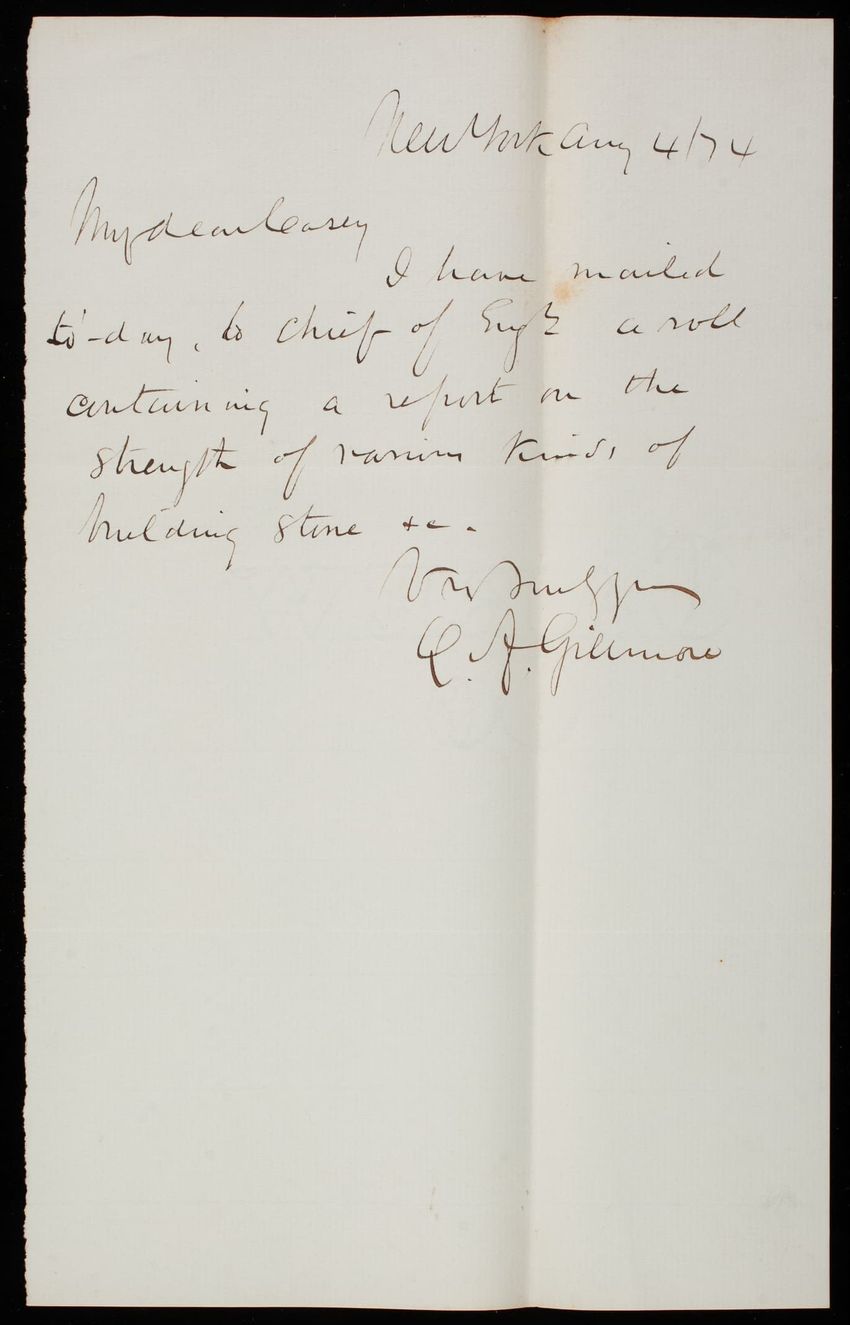 New York Aug 4/74
My dear Casey
I have mailed
to-day, to Chief of Engrs a roll
containing a report on the
strength of various kinds of
building stone &c.
Q. A. Gillmore